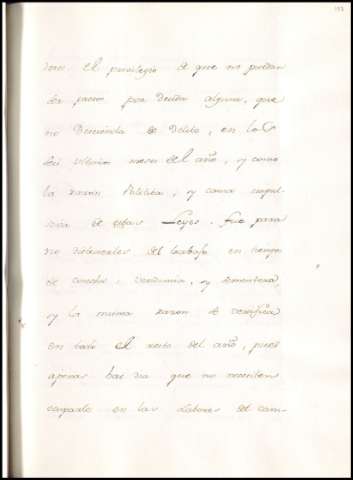 dores. el privilegio de que no puedan
ser presos por deuda alguna, que
no Descienda de Delito, en los
seis ultimos meses del año, y como
la razon Politica, y como
de estas Leyes. fue para
no distraerles del trabajo en tiempo
de cosecha, vendimia, y sementera
y la misma razon se verifica
en todo el resto del año, pues
apenas hay dia que no necesiten
ocuparlo en las labores del cam-